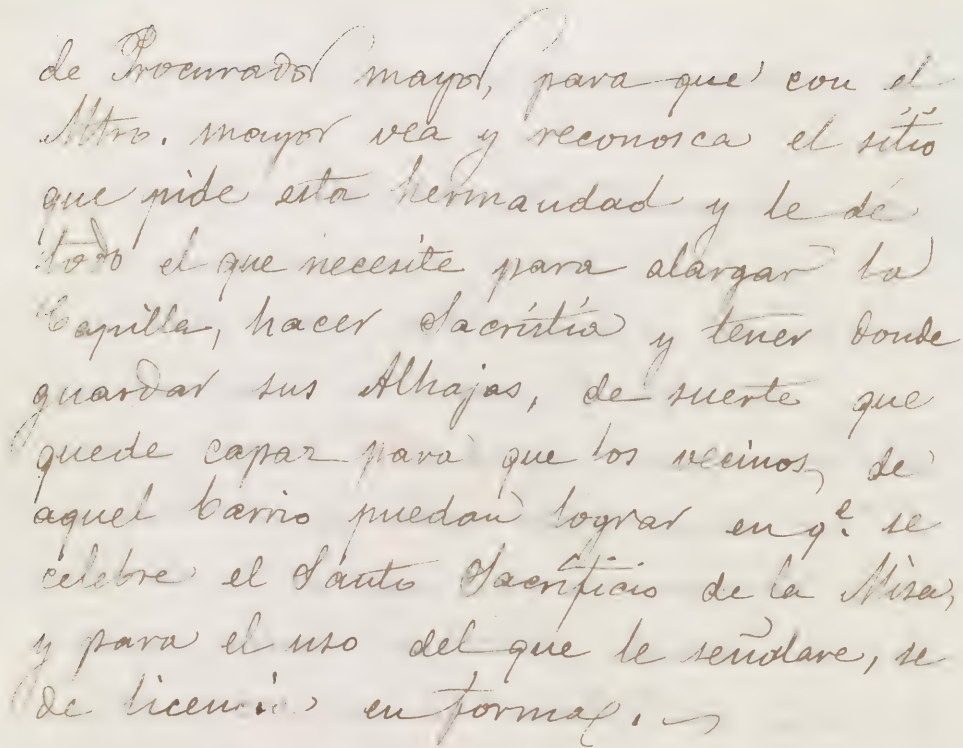 de Procurador mayor, para que con el
Mtro. mayor vea y reconosca el sitio
que pide esta hermandad y le dé
todo el que necesite para alargar la
Capilla, hacer Sacristía y tener donde
guardar sus Alhajas, de suerte que
quede capaz para que los vecinos, de
aquel barrio puedan lograr en q.e se
celebre el Santo Sacrificio de la Misa,
y para el uso del que le señalare, se
de licencia en forma.